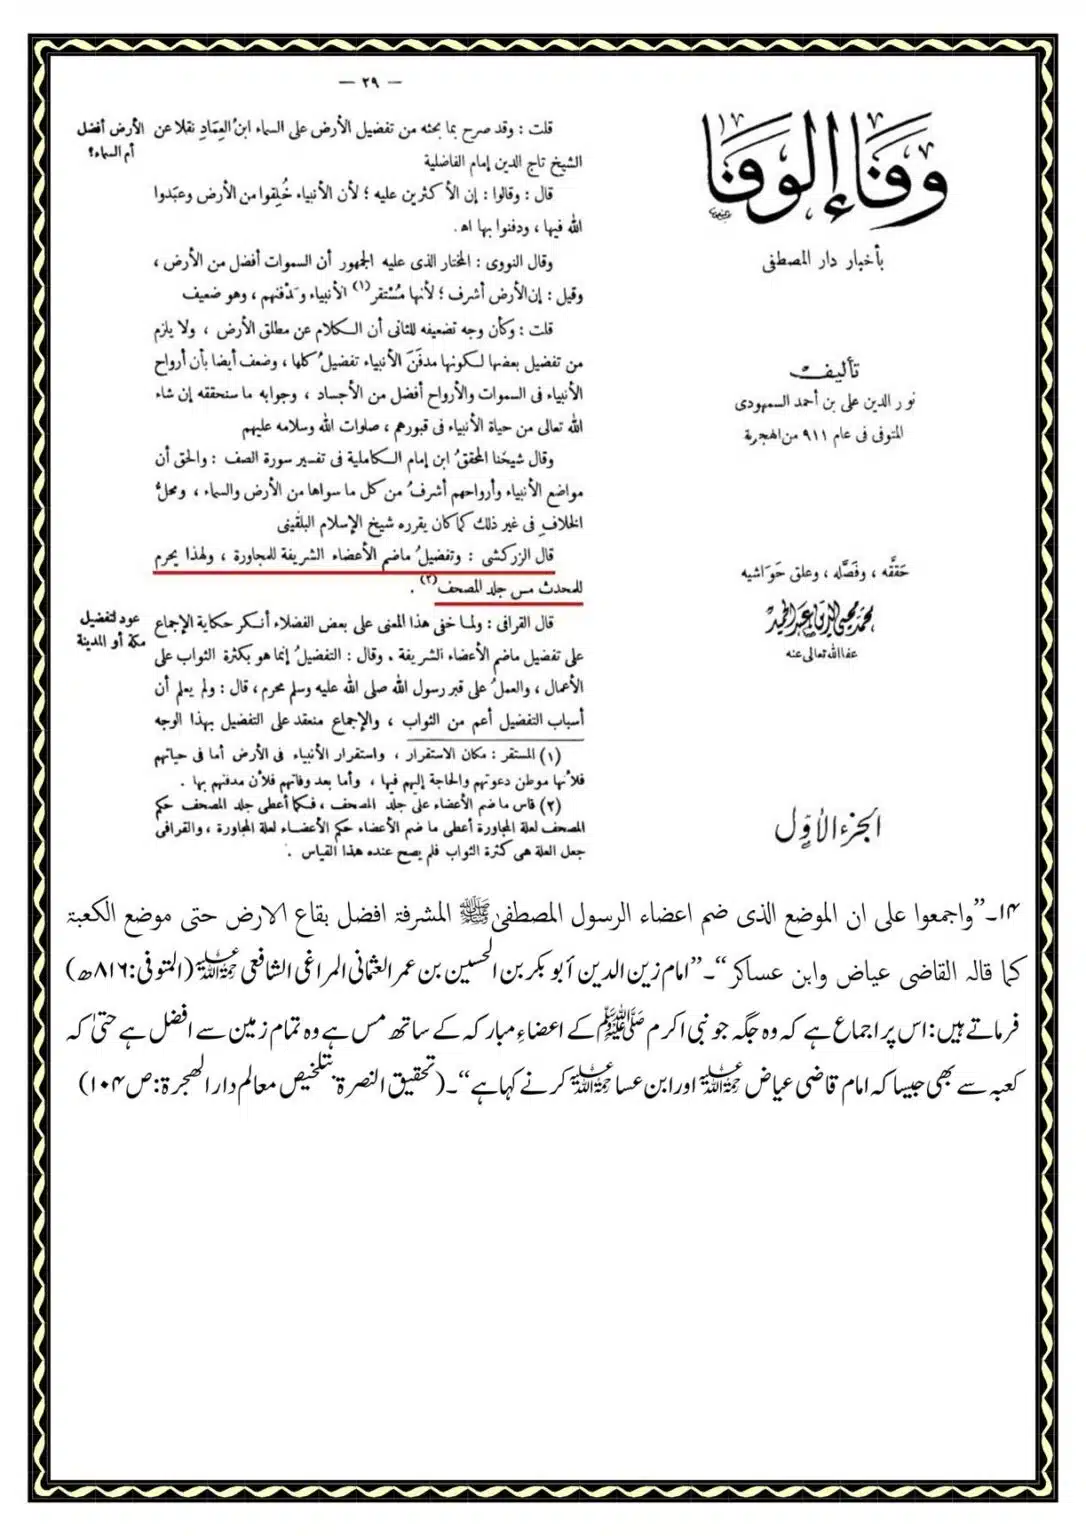 — ٢٩ —
قلت : وقد صرح بما بحثه من تفضيل الأرض على السماء ابنُ العِمَادِ نقلا عن
الشيخ تاج الدين إمام الفاضلية
الأرض أفضل
أم السماء؟
قال : وقالوا : إن الأكثرين عليه ؛ لأن الأنبياء خُلِقوا من الأرض وعبَدوا
الله فيها ، ودفنوا بها اهـ .
وقال النووى : المختار الذى عليه الجمهور أن السموات أفضل من الأرض ،
وقيل : إن الأرض أشرف ؛ لأنها مُسْتقر(١) الأنبياء ومَدْفنهم ، وهو ضعيف
قلت : وكأن وجه تضعيفه للثانى أن الكلام عن مطلق الأرض ، ولا يلزم
من تفضيل بعضها لكونها مدفَنَ الأنبياء تفضيلُ كلها ، وضعف أيضا بأن أرواح
الأنبياء فى السموات والأرواح أفضل من الأجساد ، وجوابه ما سنحققه إن شاء
الله تعالى من حياة الأنبياء فى قبورهم ، صلوات الله وسلامه عليهم
وقال شيخنا المحققُ ابن إمام الكاملية فى تفسير سورة الصف : والحق أن
مواضع الأنبياء وأرواحهم أشرفُ من كل ما سواها من الأرض والسماء ، ومحلُّ
الخلافِ فى غير ذلك كما كان يقرره شيخ الإسلام البلقينى
قال الزركشى : وتفضيلُ ماضم الأعضاء الشريفة للمجاورة ، ولهذا يحرم
للمحدث مس جلد المصحف(٢) .
قال القرافى : ولما خفى هذا المعنى على بعض الفضلاء أنكر حكاية الإجماع
على تفضيل ماضم الأعضاء الشريفة . وقال : التفضيلُ إنما هو بكثرة الثواب على
الأعمال ، والعملُ على قبر رسول الله صلى الله عليه وسلم محرم ، قال : ولم يعلم أن
أسباب التفضيل أعم من الثواب ، والإجماع منعقد على التفضيل بهذا الوجه
عود لتفضيل
مكة أو المدينة
(١) المستقر : مكان الاستقرار ، واستقرار الأنبياء فى الأرض أما فى حياتهم
فلأنها موطن دعوتهم والحاجة إليهم فيها ، وأما بعد وفاتهم فلأن مدفنهم بها .
(٢) قاس ما ضم الأعضاء على جلد المصحف ، فكما أعطى جلد المصحف حكم
المصحف لعلة المجاورة أعطى ما ضم الأعضاء حكم الأعضاء لعلة المجاورة ، والقرافى
جعل العلة هى كثرة الثواب فلم يصح عنده هذا القياس .
وفاء الوفا
بأخبار دار المصطفى
تأليف
نور الدين على بن أحمد السمهودى
المتوفى فى عام ٩١١ من الهجرة
حَقَّقه ، وفَصَّله ، وعلق حَوَاشيه
محمد محيى الدين عبد الحميد
عفا الله تعالى عنه
الجزء الأول
۱۴۔”واجمعوا علی ان الموضع الذی ضم اعضاء الرسول المصطفیٰ ﷺ المشرفۃ افضل بقاع الارض حتی موضع الکعبۃ
کما قالہ القاضی عیاض وابن عساکر“۔”امام زین الدین أبو بکر بن الحسین بن عمر العثمانی المراغی الشافعی رحمۃ اللہ علیہ (المتوفی:۸۱۶ھ)
فرماتے ہیں:اس پر اجماع ہے کہ وہ جگہ جو نبی اکرم ﷺ کے اعضاءِ مبارکہ کے ساتھ مس ہے وہ تمام زمین سے افضل ہے حتیٰ کہ
کعبہ سے بھی جیسا کہ امام قاضی عیاض رحمۃ اللہ علیہ اور ابن عسا رحمۃ اللہ علیہ کرنے کہا ہے“۔(تحقیق النصرۃ بتلخیص معالم دار الھجرۃ:ص۱۰۴)